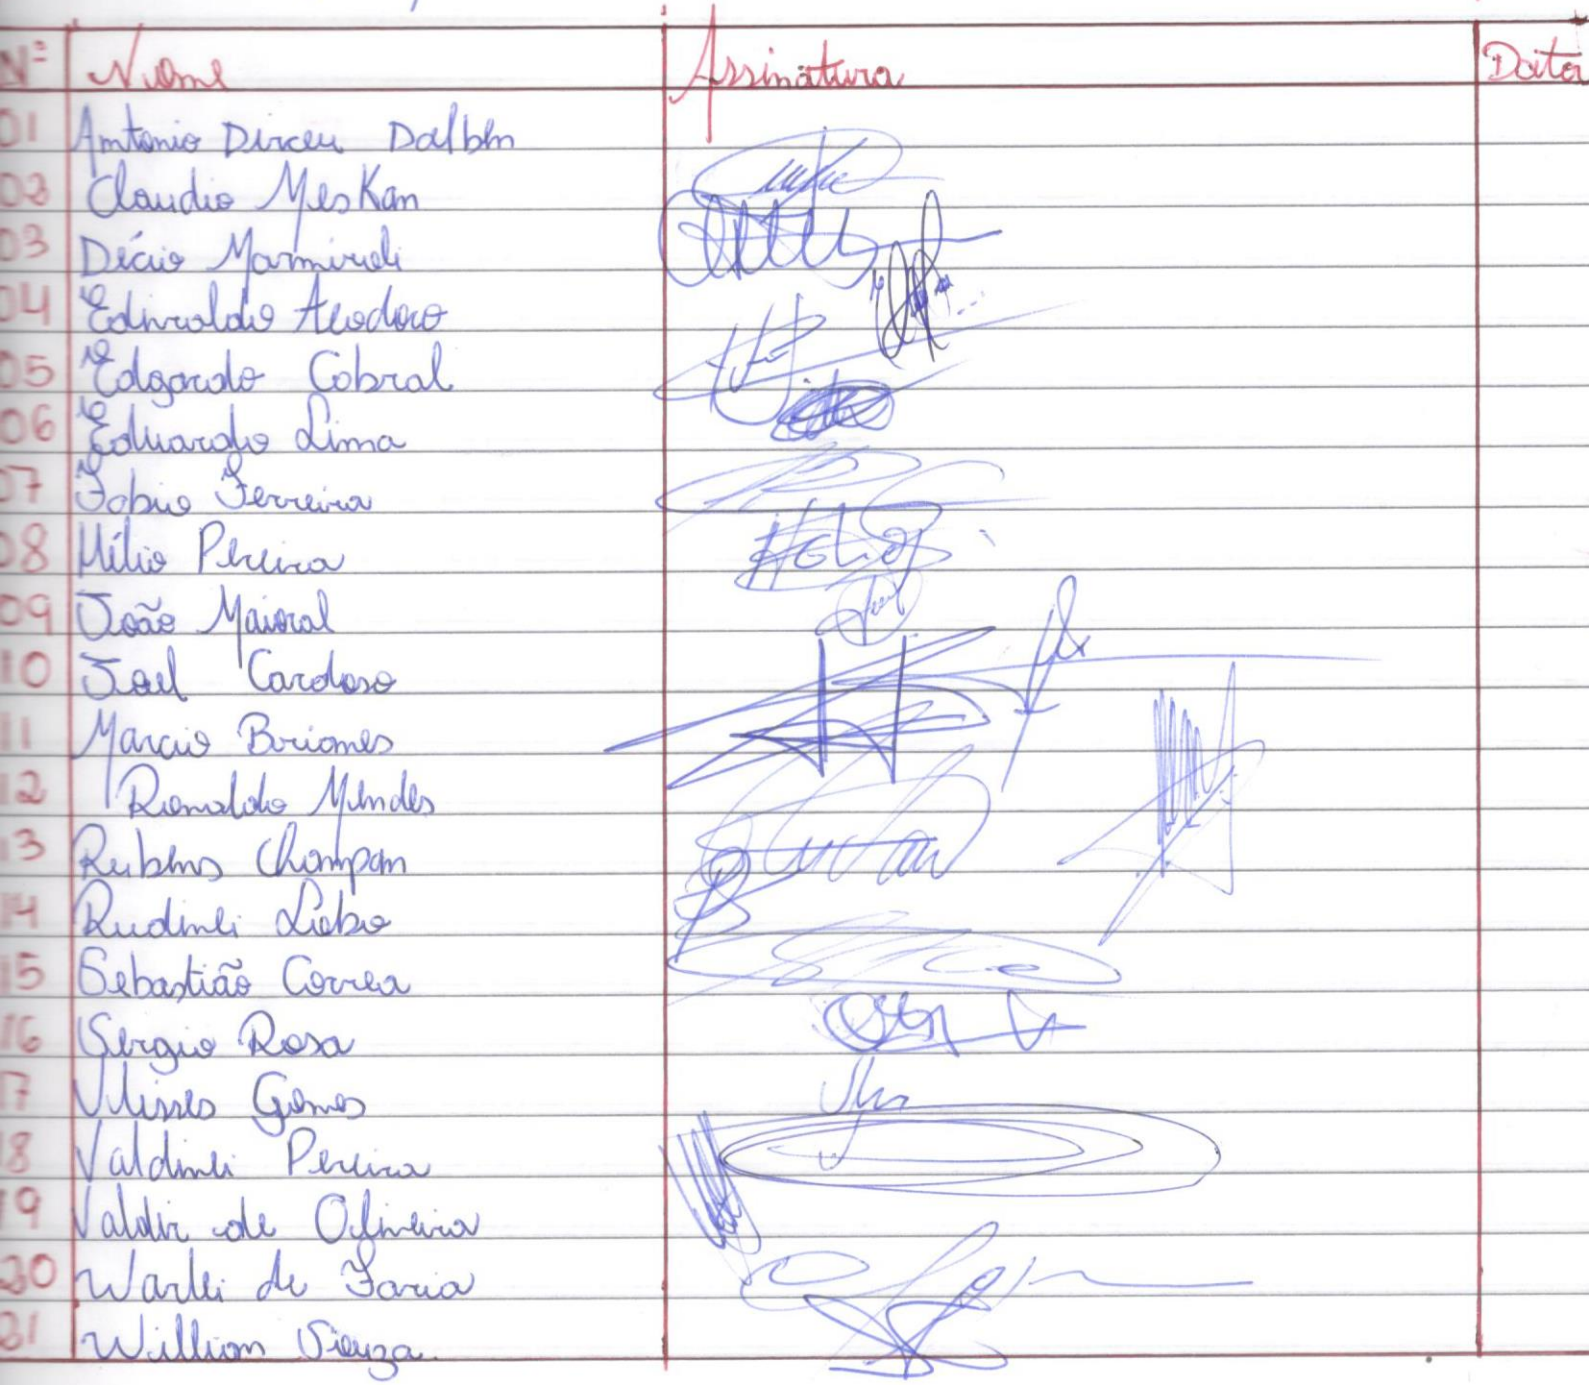 Nº Nome Assinatura Data
01 Antonio Dirceu Dalben
02 Claudio Meskan
03 Décio Marmiroli
04 Edivaldo Teodoro
05 Edgardo Cabral
06 Eduardo Lima
07 Fabio Ferreira
08 Hélio Pereira
09 João Maioral
10 Joel Cardoso
11 Marcio Briones
12 Ronaldo Mendes
13 Rubens Champam
14 Rudinei Lobo
15 Sebastião Correa
16 Sergio Rosa
17 Ulisses Gomes
18 Valdinei Pereira
19 Valdir de Oliveira
20 Warlei de Faria
21 Willian Souza